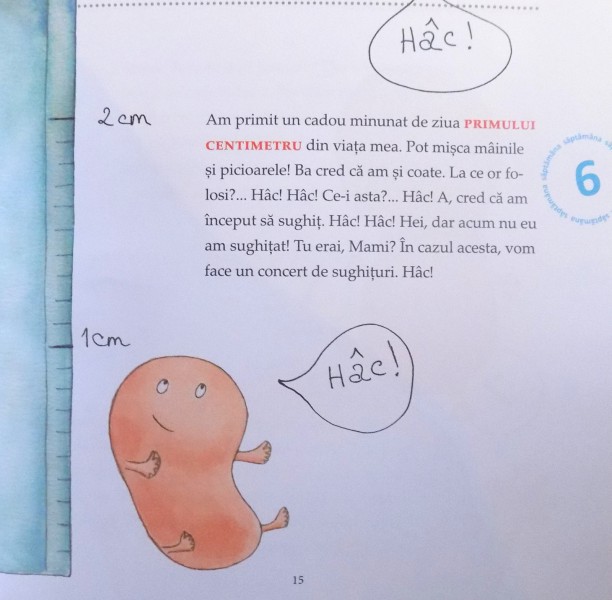 Hâc!
2 cm
Am primit un cadou minunat de ziua PRIMULUI
CENTIMETRU din viața mea. Pot mișca mâinile
și picioarele! Ba cred că am și coate. La ce or fo-
losi?... Hâc! Hâc! Ce-i asta?... Hâc! A, cred că am
început să sughiț. Hâc! Hâc! Hei, dar acum nu eu
am sughițat! Tu erai, Mami? În cazul acesta, vom
face un concert de sughițuri. Hâc!
săptămâna săptămâna săptămâna săptămâna
6
1 cm
Hâc!
15